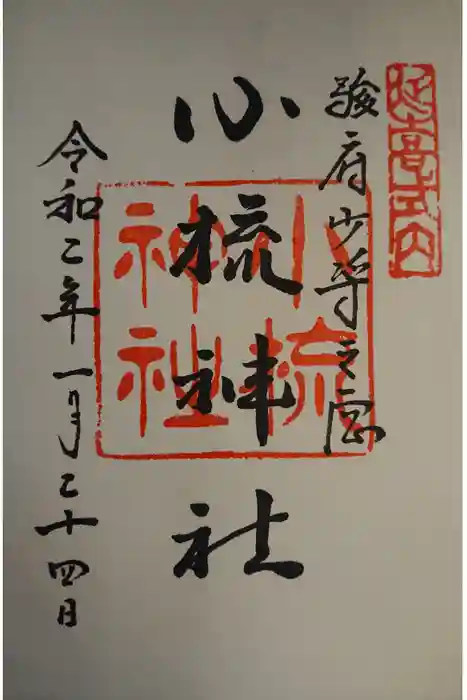 延喜式内
駿府少将之宮
小梳神社
小梳
神社
令和二年一月二十四日